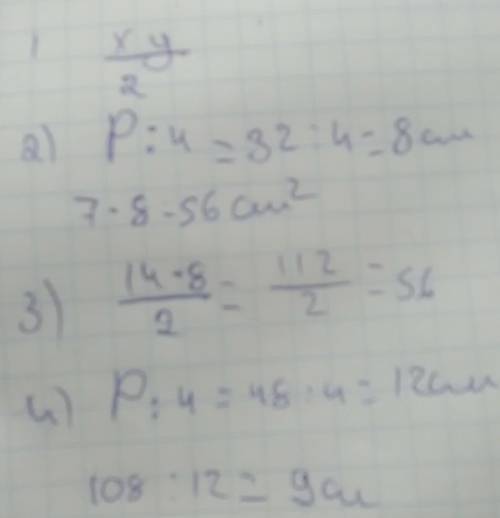 1 xy
2
2) P:4 = 32:4 = 8см
7·8 - 56 см²
3) 14·8 = 112 = 56
2 2
4) P:4 = 48:4 = 12см
108:12 = 9см